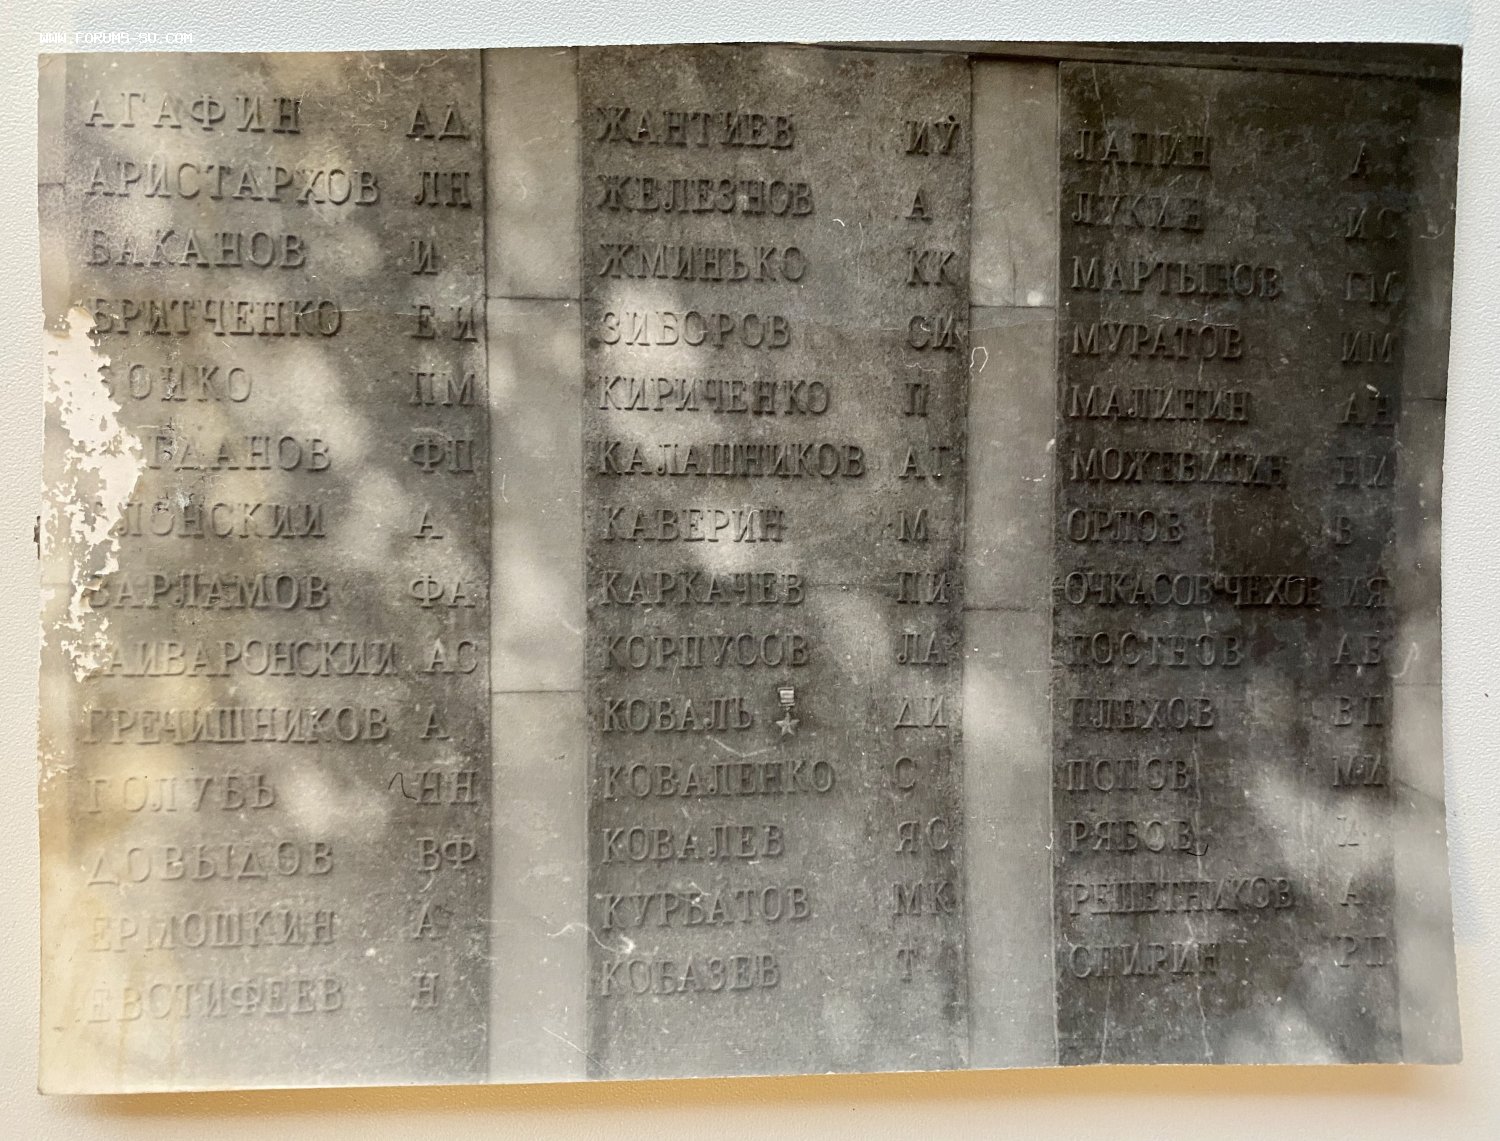 WWW.FORUMS-SU.COM
АГАФИН АД
АРИСТАРХОВ ЛН
БАКАНОВ И
БРИТЧЕНКО ЕИ
ПМ
ФП
А
ВАРЛАМОВ ФА
ГАЙВАРОНСКИЙ АС
ГРЕЧИШНИКОВ А
ГОЛУБЬ НН
ДОВЫДОВ ВФ
ЕРМОШКИН А
ЕВСТИФЕЕВ Н
ЖАНТИЕВ ИУ
ЖЕЛЕЗНОВ А
ЖМИНЬКО КК
ЗИБОРОВ СИ
КИРИЧЕНКО П
КАЛАШНИКОВ АГ
КАВЕРИН М
КАРКАЧЕВ ПИ
КОРПУСОВ ЛА
КОВАЛЬ ДИ
КОВАЛЕНКО С
КОВАЛЕВ ЯС
КУРБАТОВ МК
КОБАЗЕВ Т
ЛАПИН А
ЛУКИН ИС
МАРТЫНОВ ГМ
МУРАТОВ ИМ
МАЛИНИН АН
МОЖЕВИТИН НИ
ОРЛОВ В
ОЧКАСОВ-ЧЕХОВ ИЯ
АВ
ПЛЕХОВ ВП
ПОПОВ МИ
РЯБОВ
РЕШЕТНИКОВ А
СПИРИН РП